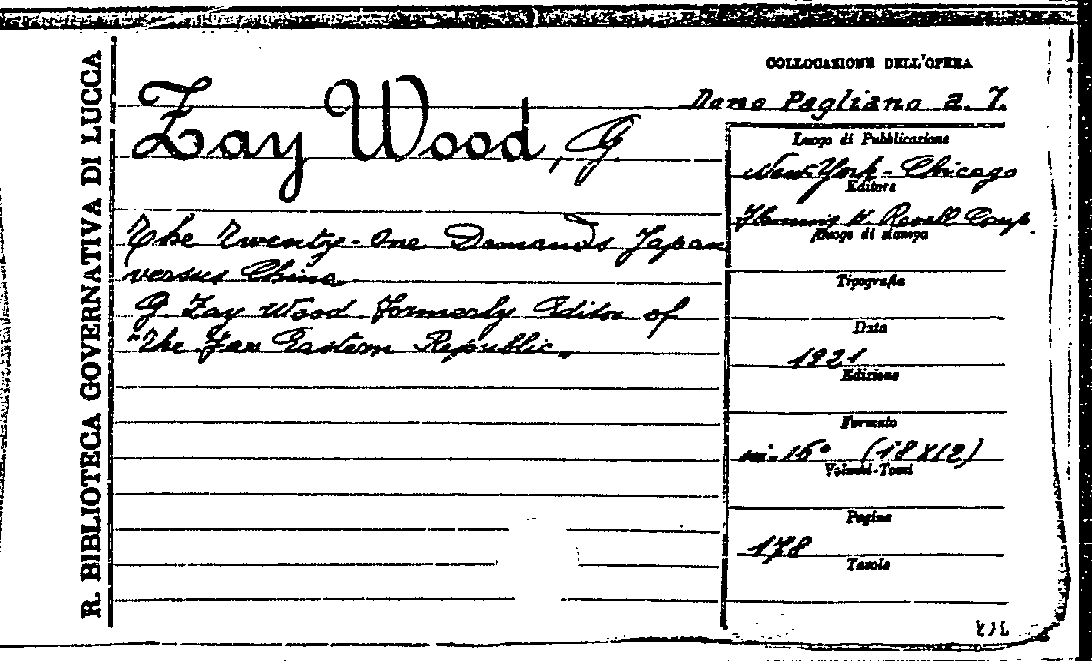 R. BIBLIOTECA GOVERNATIVA DI LUCCA
COLLOCAZIONE DELL'OPERA
Dono Pagliano a. 7.
Zay Wood, G
The Twenty-One Demands Japan
versus China
G Zay Wood Formerly Editor of
"The Far Eastern Republic"
Luogo di Pubblicazione
New-York - Chicago
Editore
H. Revell Comp.
Luogo di stampa
Tipografia
Data
1921
Edizione
Formato
in-16° (18X12)
Volumi-Tomi
Pagine
178
Tavole